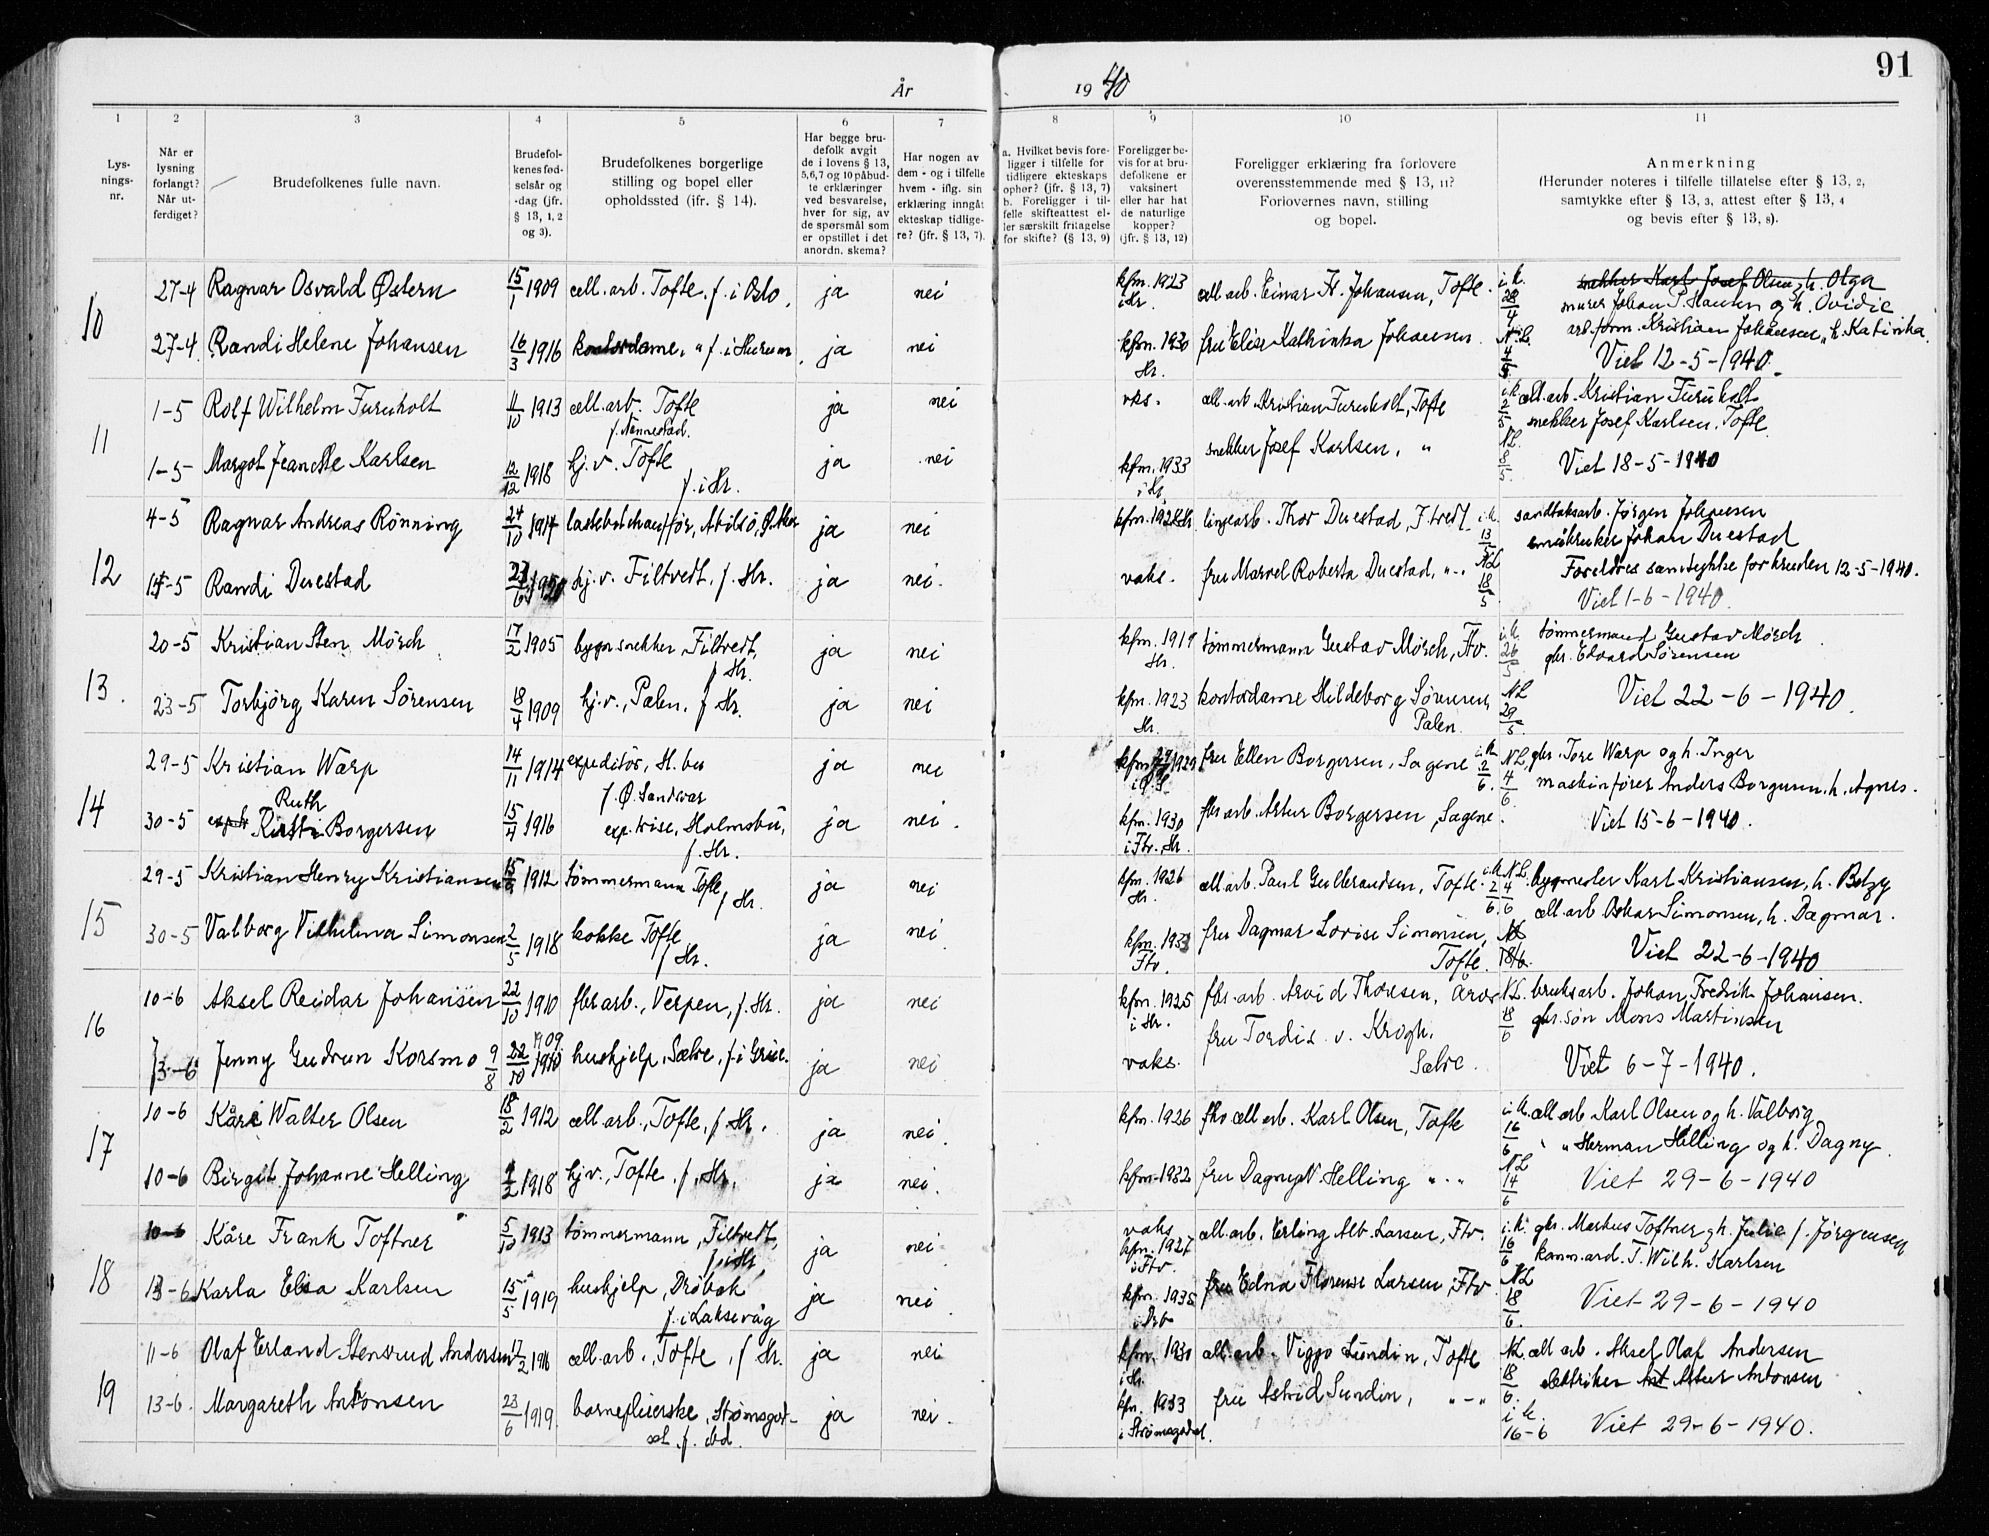 91
År 1940
1 2 3 4 5 6 7 8 9 10 11
Lys-
nings-
nr.
Når er
lysning
forlangt?
Når ut-
ferdiget?
Brudefolkenes fulle navn.
Brudefol-
kenes fød-
selsår og
-dag (jfr.
§ 13, 1, 2
og 3).
Brudefolkenes borgerlige
stilling og bopel eller
opholdssted (ifr. § 14).
Har begge bru-
defolk avgit
de i lovens § 13,
5,6,7 og 10 påbud-
te erklæringer
ved besvarelse,
hver for sig, av
de spørsmål som
er opstillet i det
anordn. skema?
Har nogen av
dem - og i tilfelle
hvem - iflg. sin
erklæring inngåt
ekteskap tidlige-
re? (jfr. § 13, 7).
a. Hvilket bevis fore-
ligger i tilfelle for
tidligere ekteskaps
ophør? (jfr. § 13, 7)
b. Foreligger i til-
felle skifteattest el-
ler særskilt fritagelse
for skifte? (§ 13, 9)
Foreligger be-
vis for at bru-
defolkene er
vaksinert
eller har hat
de naturlige
kopper?
(jfr. § 13, 12)
Foreligger erklæring fra forlovere
overensstemmende med § 13, 11?
Forlovernes navn, stilling
og bopel.
Anmerkning
(Herunder noteres i tilfelle tillatelse efter § 13, 2,
samtykke efter § 13, 3, attest efter § 13, 4
og bevis efter § 13, 8).
10
27-4 Ragnar Osvald Østern 15/1 1909 cell. arb. Tofte, f. i Oslo. ja nei kfm. 1923 i Hr. cell. arb. Einar Fr. Johansen, Tofte. i.k. 28/4 snekker Karl Josef Olsen, h. Olga
murer Johan P. Hansen og h. Ovidie
arb.form. Kristian Johansen, h. Katinka
27-4 Randi Helene Johansen 16/3 1916 kontordame, " f. i Hurum, ja nei kfm. 1930 Hr. fru Elise Kathinka Johansen N.L. 4/5 Viet 12-5-1940.
11
1-5 Rolf Wilhelm Furuholt 11/10 1913 cell. arb. Tofte ja nei vks. cell. arb. Kristian Furuholt, Tofte i.k. 2/5 cell. arb. Kristian Furuholt
snekker Josef Karlsen, Tofte
1-5 Margot Jeanette Karlsen 12/12 1918 hj. v. Tofte f. i Hr. ja nei kfm. 1933 i Hr. snekker Josef Karlsen, " N.L. 8/5 Viet 18-5-1940
12
4-5 Ragnar Andreas Rönning 24/10 1914 lastebilchauffør, Abilsö, Ø. Aker ja nei kfm. 1928 Hr. Thor Duestad, Filtvedt i.k. 13/5 sandtaksarb. Jørgen Johansen
småbruker Johan Duestad
14-5 Randi Duestad 1920 hj. v. Filtvedt, f. Hr. ja nei. vaks. fru Marvel Roberta Duestad, "-. N.L. 18/5 Foreldres samtykke for bruden 12-5-1940.
Viet 1-6-1940.
13.
20-5 Kristian Sten Mörch 17/2 1905 bygn.snekker, Filtvedt, f. Hr. ja nei kfm. 1919 Hr. tømmermann Gustav Mörch, Ftv. i.k. 26/5 tömmermand Gustav Mörch
gbr. Edvard Sørensen
23-5 Torbjörg Karen Sörensen 18/4 1909 hj. v., Pælen, f. Hr. ja nei kfm. 1923 Hr. kontordame Hildeborg Sörensen, Pælen. N.L. 29/5. Viet 22-6-1940.
14
29-5 Kristian Warp 14/11 1914 expeditör, H. bu f. Ø. Sandsvær ja nei kfm. 1929 fru Ellen Borgersen, Sagene i.k. 2/6. N.L. 4/6. gbr. Tore Warp og h. Inger
maskinfører Anders Borgersen, h. Agnes.
30-5 Ruth Kirsti Borgersen 15/4 1916 exp.trise, Holmsbu, f. Hr. ja nei. kfm. 1930 i Ftv. Hr. fbr arb. Artur Borgersen, Sagene. Viet 15-6-1940.
15
29-5 Kristian Henry Kristiansen 1912 tömmermann Tofte, f. Hr. ja nei kfm. 1926 Hr. cell. arb. Paul Gulbrandsen, Tofte. i.k. 2/6. N.L. 4/6 bygmester Karl Kristiansen, h. Betzy
cell. arb Oskar Simonsen, h. Dagmar.
30-5 Valborg Vilhelma Simonsen 2/5 1918 kokke Tofte f. Hr. ja nei kfm. 1933 Ftv. fru Dagmar Lovise Simonsen, Tofte. 18/6. Viet 22-6-1940
16
10-6 Aksel Reidar Johansen 22/10 1910 fbr. arb., Verpen, f. Hr. ja nei kfm. 1925 i Hr. fbr. arb. Arvid Thoresen, Årøs N.L. 18/6 bruksarb. Johan Fredrik Johansen.
gbr. søn Mons Martinsen
13-6 Jenny Gudrun Korsmo 9/8 1909 22/10 1910 hushjelp, Sætre, f. i Grue. ja nei vaks. fru Tordis v. Krogh. Sætre. Viet 6-7-1940.
17
10-6 Kåre Walter Olsen 18/2 1912 cell. arb., Tofte, f. Hr. ja nei. kfm. 1926 cell arb. Karl Olsen, Tofte i.k. 16/6 cell. arb Karl Olsen og h. Valborg
" " Herman Helling og h. Dagny.
10-6 Birgit Johanne Helling 1918 hj v., Tofte, f. Hr. ja nei. kfm. 1932 fru Dagny Helling " - " N.L. 14/6 Viet 29-6-1940
18
10-6 Kåre Frank Toftner 5/10 1913 tömmermann, Filtvedt, f. i Hr. ja nei vaks kfm. 1927 i Ftv. cell. arb. Erling Alb. Larsen, Ftv. i.k. 16/6 gbr. Markus Toftner, h. Julie f. Jörgensen
komm.arb. T. Wilh. Karlsen
13-6 Karla Elsa Karlsen 15/5 1919 hushjelp, Dröbak f. i Laksevåg ja nei kfm. 1935 i Drb fru Edna Florense Larsen, Ftv N.L. 18/6. Viet 29-6-1940
19
11-6 Olaf Erland Stensrud Andersen 1916 cell. arb., Tofte, f. Hr. ja nei kfm. 1930 i Hr. cell. arb. Viggo Lundin, Tofte N.L. 18/6. cell arb. Aksel Olaf Andersen
elektriker Artur Antonsen
13-6. Margareth Antonsen 23/6 1919 barnepleierske, Strømsgod-set f. ibd. ja nei. kfm. 1933 i Strømsgodset. fru Astrid Lundin, " - " i.k. 16-6 Viet 29-6-1940.